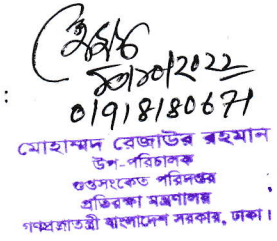 ২০/১০/2022
01918180671
:
মোহাম্মদ রেজাউর রহমান
উপ-পরিচালক
গুপ্তসংকেত পরিদপ্তর
প্রতিরক্ষা মন্ত্রণালয়
গণপ্রজাতন্ত্রী বাংলাদেশ সরকার, ঢাকা।